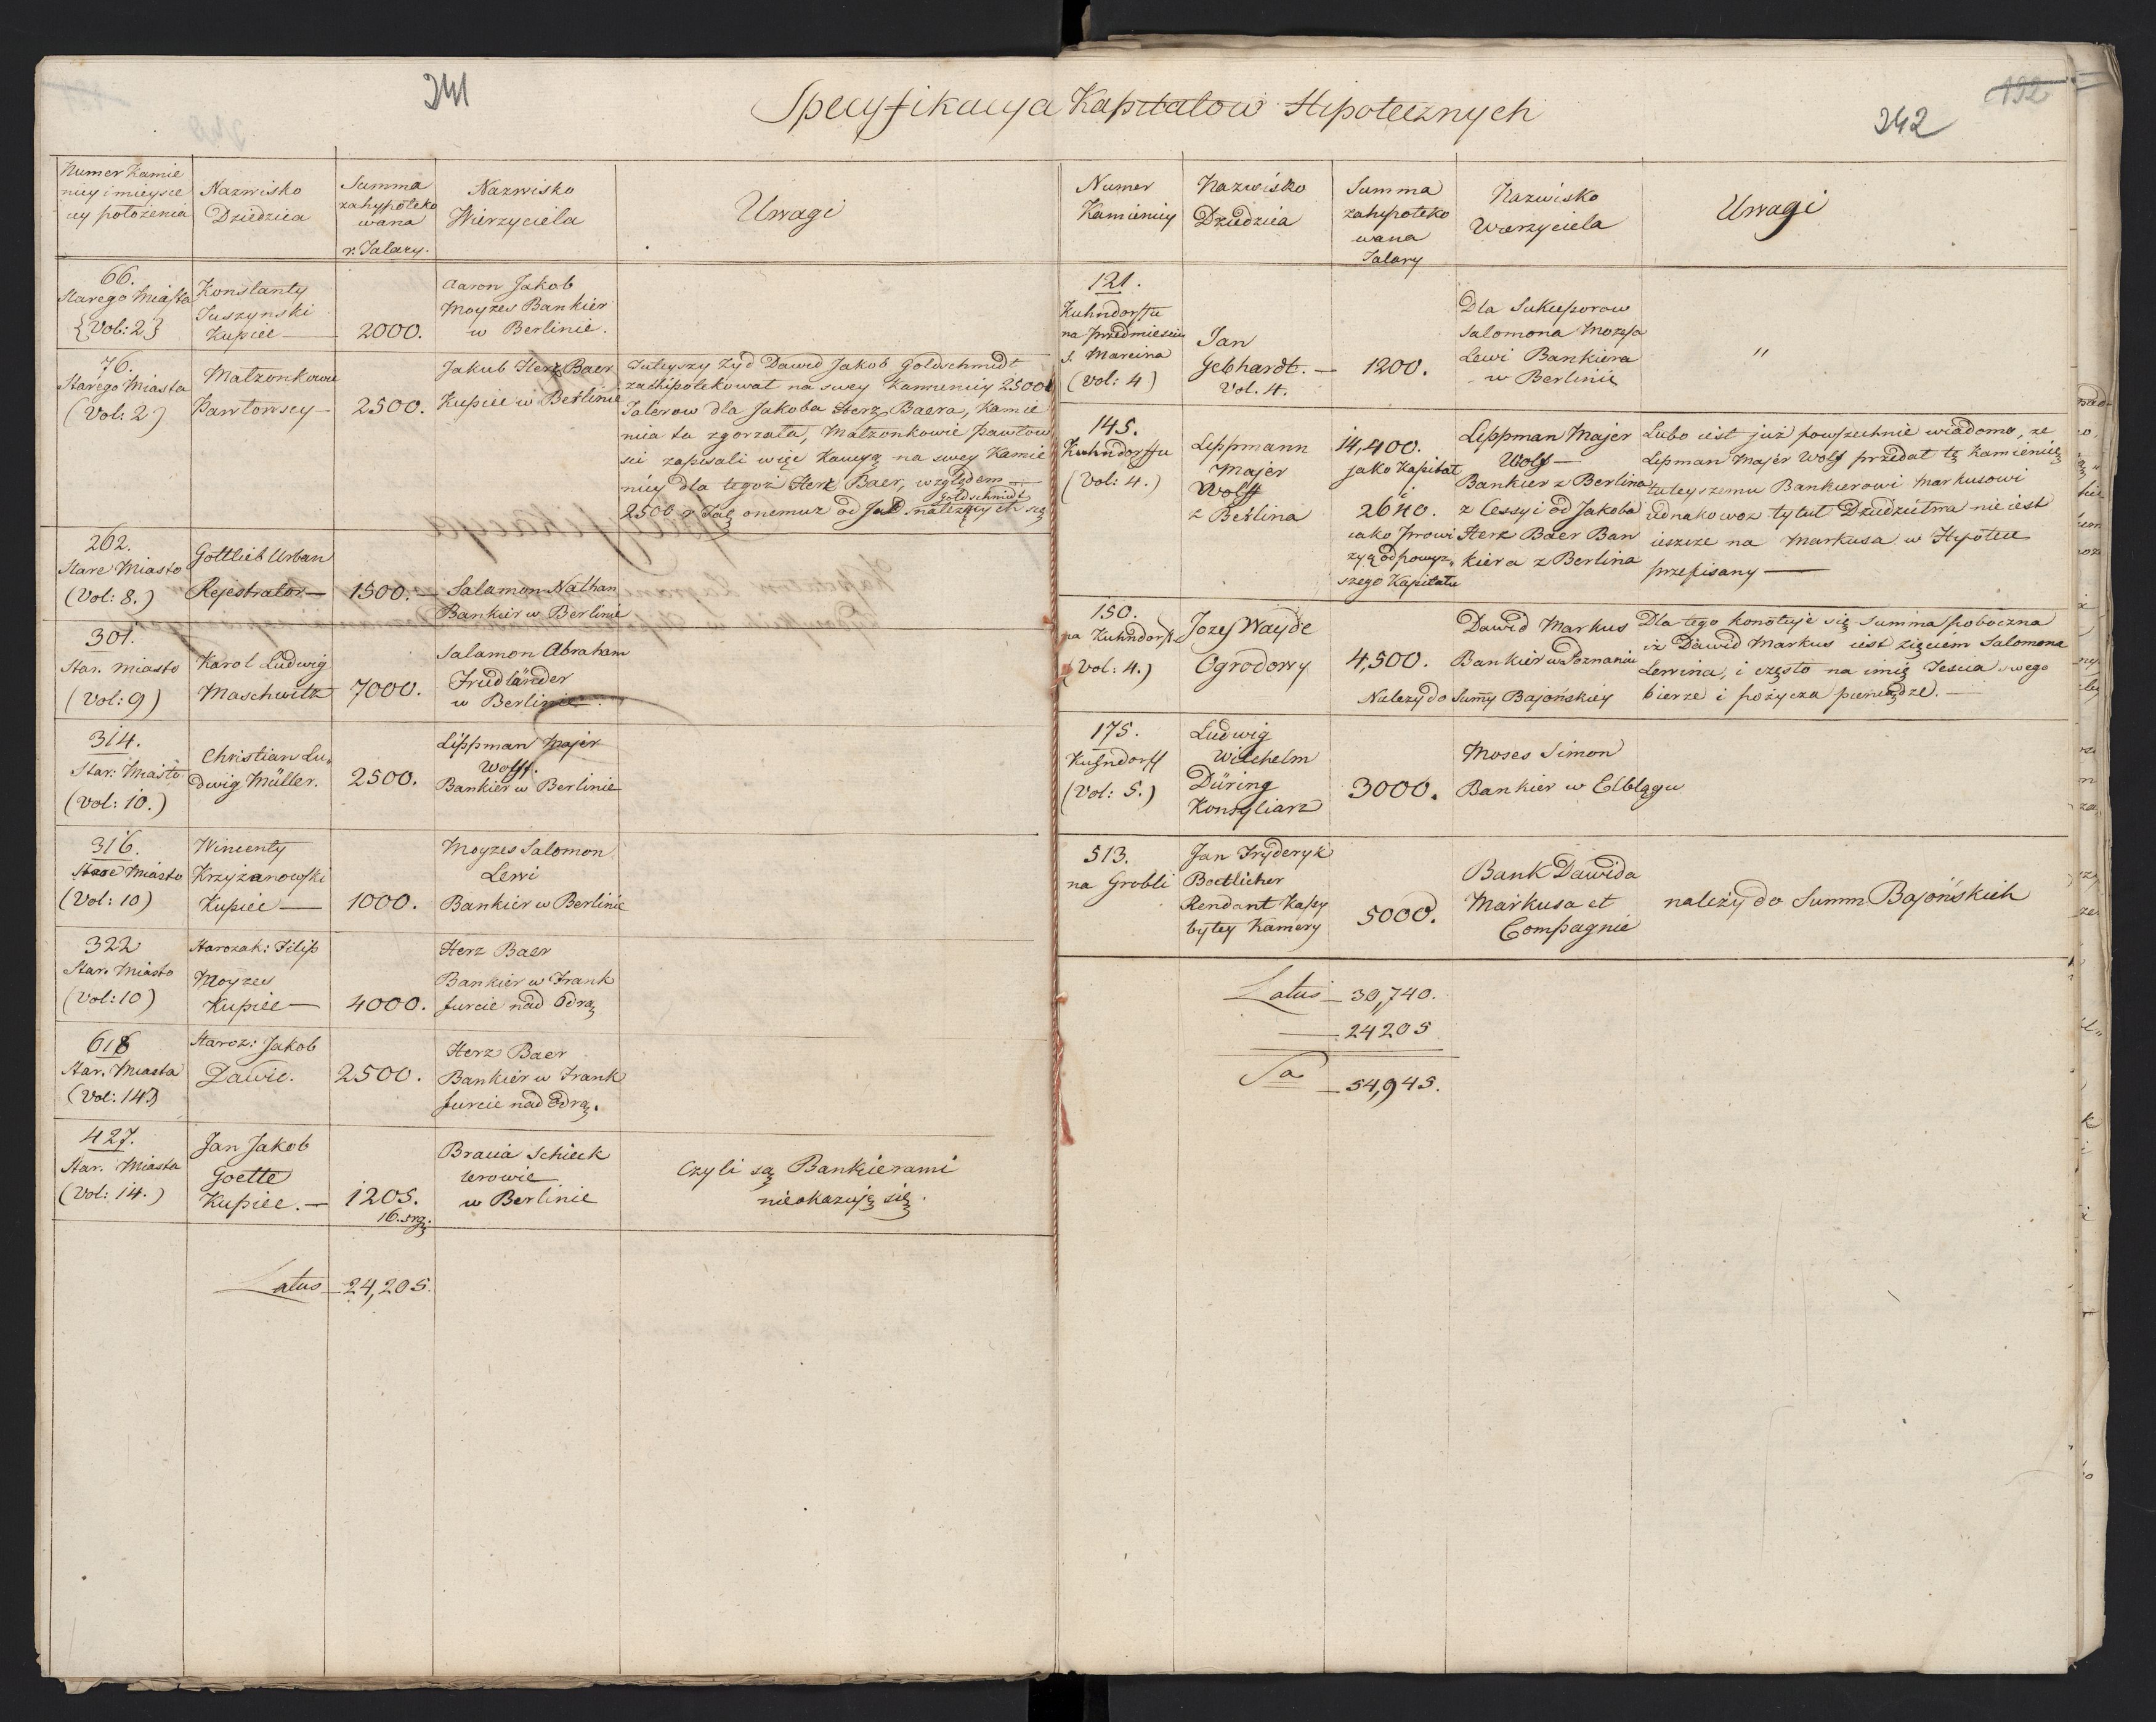 241
Specyfikacya Kapitalow Hipotecznych
242
192
Numer Kamie
nicy i mieysce
jey położenia
Nazwisko
Dziedzica
Summa
zahypoteko
wana
r. Talary.
Nazwisko
Wierzyciela
Uwagi
66.
Starego Miasta
{Vol: 2}
Konstanty
Suszynski
Kupiec —
2000.
Aaron Jakob
Moyzes Bankier
w Berlinie.
76.
Starego Miasta
(Vol: 2)
Małzonkowie
Pawłowscy —
2500.
Jakub Herz Baer
Kupiec w Berlinie
Tuteyszy Zyd Dawid Jakob Goldschmidt
zachipotekował na swey Kamienicy 2500
Talerow dla Jakoba Herz Baera, Kamie
nica ta zgorzała, Małzonkowie Pawłow
sci zapisali więc Kaucyą na swey Kamie
nicy dla tegoż Herz Baer, względem —
Goldschmidt
2500 r Tal onemuz od Jud należących się
262.
Stare Miasto
(Vol: 8.)
Gottlieb Urban
Rejestrator —
1500. —
Salamon Nathan
Bankier w Berlinie
301.
Star. Miasto
(Vol: 9)
Karol Ludwig
Maschwitz
7000.
Salamon Abraham
Friedländer
w Berlinie.
314.
Star: Miasto
(Vol: 10.)
Christian Lu„
dwig Müller.
2500.
Lippman Majer
Wolff.
Bankier w Berlinie
316.
Stare Miasto
(Vol: 10)
Wincenty
Krzyżanowski
Kupiec —
1000.
Moyzes Salomon
Lewi
Bankier w Berlinie
322
Star. Miasto
(Vol: 10)
Starozak: Filip
Moyzes
Kupiec —
4000.
Herz Baer
Bankier w Frank
furcie nad Odrą
618
Star. Miasta
(Vol: 14)
Staroz: Jakob
Dawic.
2500.
Herz Baer
Bankier w Frank
furcie nad Odrą.
427.
Star. Miasta
(Vol: 14.)
Jan Jakob
Goette
Kupiec. —
1205.
16. srg.
Bracia Schick
lerowie
w Berlinie
Czyli są Bankierami
nieokazuję się.
Latus — 24,205.
Numer
Kamienicy
Nazwisko
Dziedzica
Summa
zahypoteko
wana
Talary
Nazwisko
Wierzyciela
Uwagi
121.
Kuhndorffu
na Przedmiesciu
S. Marcina
(Vol: 4)
Jan
Gebhardt. —
Vol. 4.
1200.
Dla Sukcessorow
Salomona Mozesa
Lewi Bankiera
w Berlinie
"
145.
Kuhndorffu
(Vol: 4.)
Lippmann
Majer
Wolff
z Berlina
14,400.
jako Kapitał
i
2640.
iako Prowi
zyą od powyz„
szego Kapitału
Lippman Majer
Wolf —
Bankier z Berlina
z Cessyi od Jakoba
Herz Baer Ban
kiera z Berlina
Lubo iest już powszechnie wiadomo, ze
Lipman Majer Wolf przedał tę Kamienicę
tuteyszemu Bankierowi Markusowi
jednakowoz tytuł Dziedzictwa nie iest
ieszcze na Markusa w Hypotece
przepisany —
150.
na Kuhndorf.
(Vol: 4.)
Jozef Wayde
Ogrodowy
4,500.
Dawid Markus
Bankier w Poznaniu
Nalezy do Sumy Bajońskiey
Dla tego konotuje się Summa poboczna
iż Dawid Markus iest zięciem Salomona
Lewina, i często na imię Tescia swego
bierze i pożycza pieniądze. —
175.
Kuhndorff
(Vol: 5.)
Ludwig
Wilhelm
Düring
Konsyliarz
3000.
Moses Simon
Bankier w Elblągu
513.
na Grobli
Jan Fryderyk
Boetlicher
Rendant Kassy
byłey Kamery
5000.
Bank Dawida
Markusa et
Compagnie
należy do Summ Bajońskich
Latus — 30,740.
— 24205
Sa — 54,945.